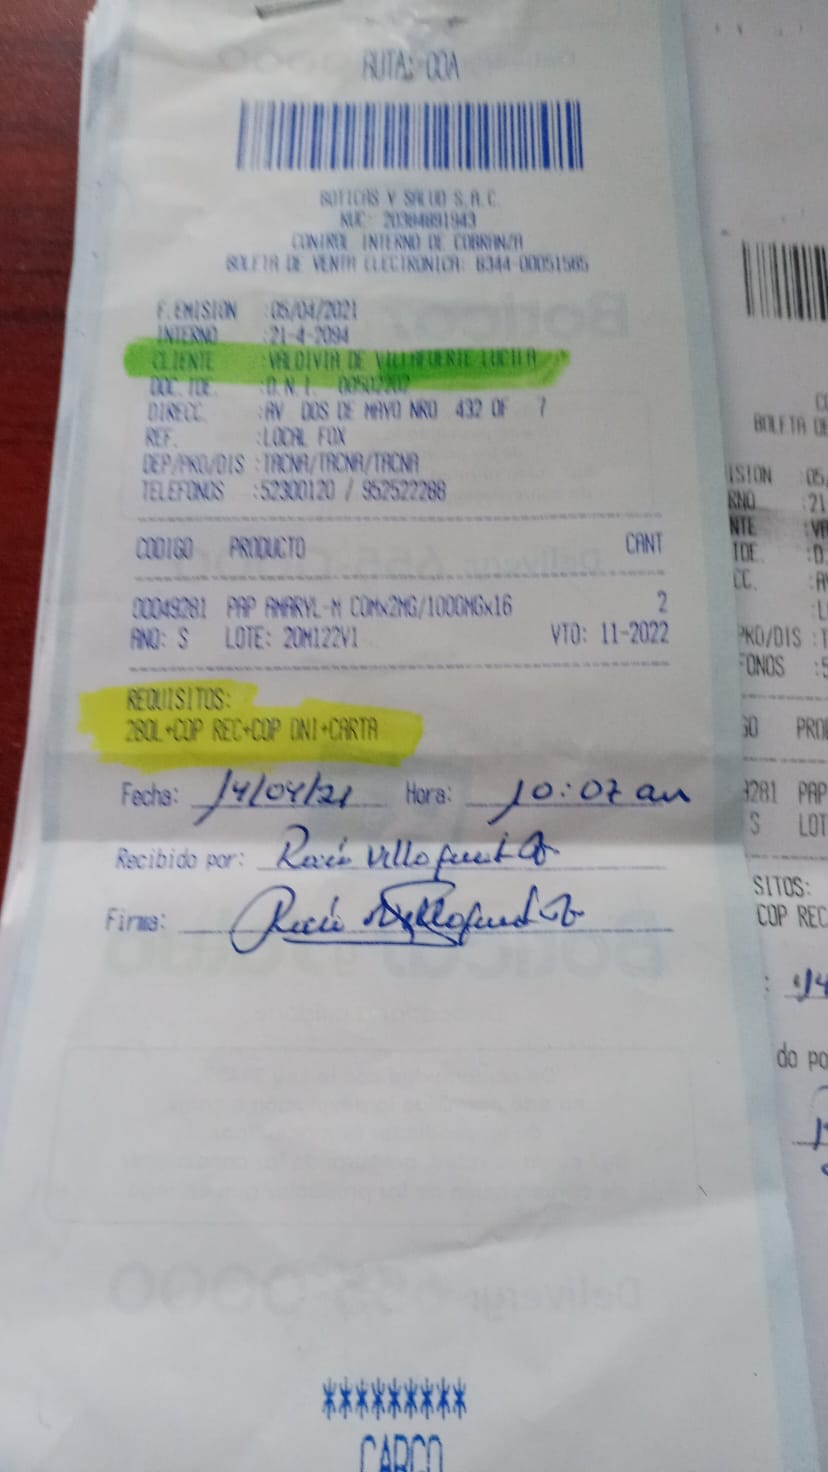 RUTA: OOA
BOTICAS Y SALUD S.A.C.
RUC: 20384891943
CONTROL INTERNO DE COBRANZA
BOLETA DE VENTA ELECTRONICA: B344-00051585
F.EMISION :05/04/2021
INTERNO :21-4-2094
CLIENTE :VALDIVIA DE VILLAFUERTE LUCILA
DOC. IDE. :D.N.I. 00502202
DIRECC. :AV DOS DE MAYO NRO 432 OF 7
REF. :LOCAL FOX
DEP/PRO/DIS :TACNA/TACNA/TACNA
TELEFONOS :52300120 / 952522288
CODIGO PRODUCTO CANT
00049281 PAP AMARYL-M COMx2MG/1000MGx16 2
ANO: S LOTE: 20M122V1 VTO: 11-2022
REQUISITOS:
2BOL+COP REC+COP DNI+CARTA
Fecha: 14/04/21 Hora: 10:07 am
Recibido por: Rocío Villafuert
Firma: Rocío Villafuert
*********
CARGO
BOLETA DE
ISION :05
:21
IDE. :D
CC. :A
PRO/DIS :T
FONOS :5
PROD
9281 PAP
S LOT
SITOS:
COP REC
do po